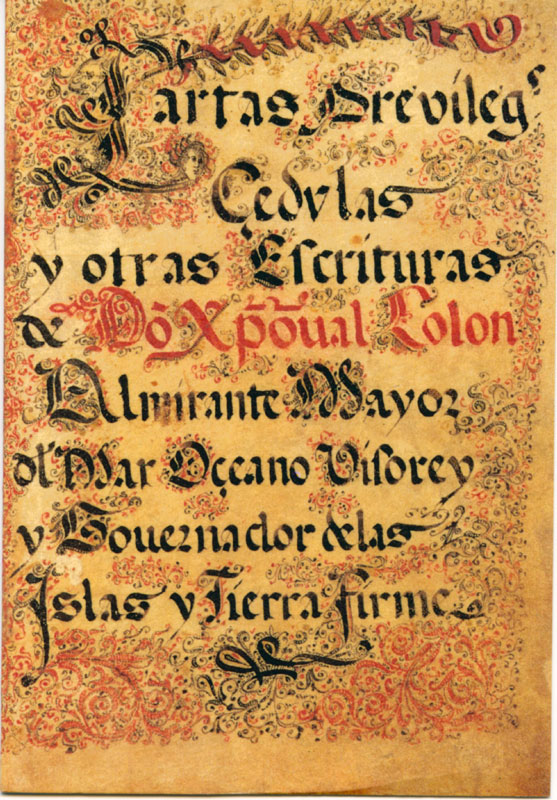 Cartas Previleg^s
Çedvlas
y otras Escrituras
de Dõ Xp̃õual Colon
Almirante Mayor
dl' Mar Oççeano Visorey
y Gouernador delas
Islas y Tierra firme